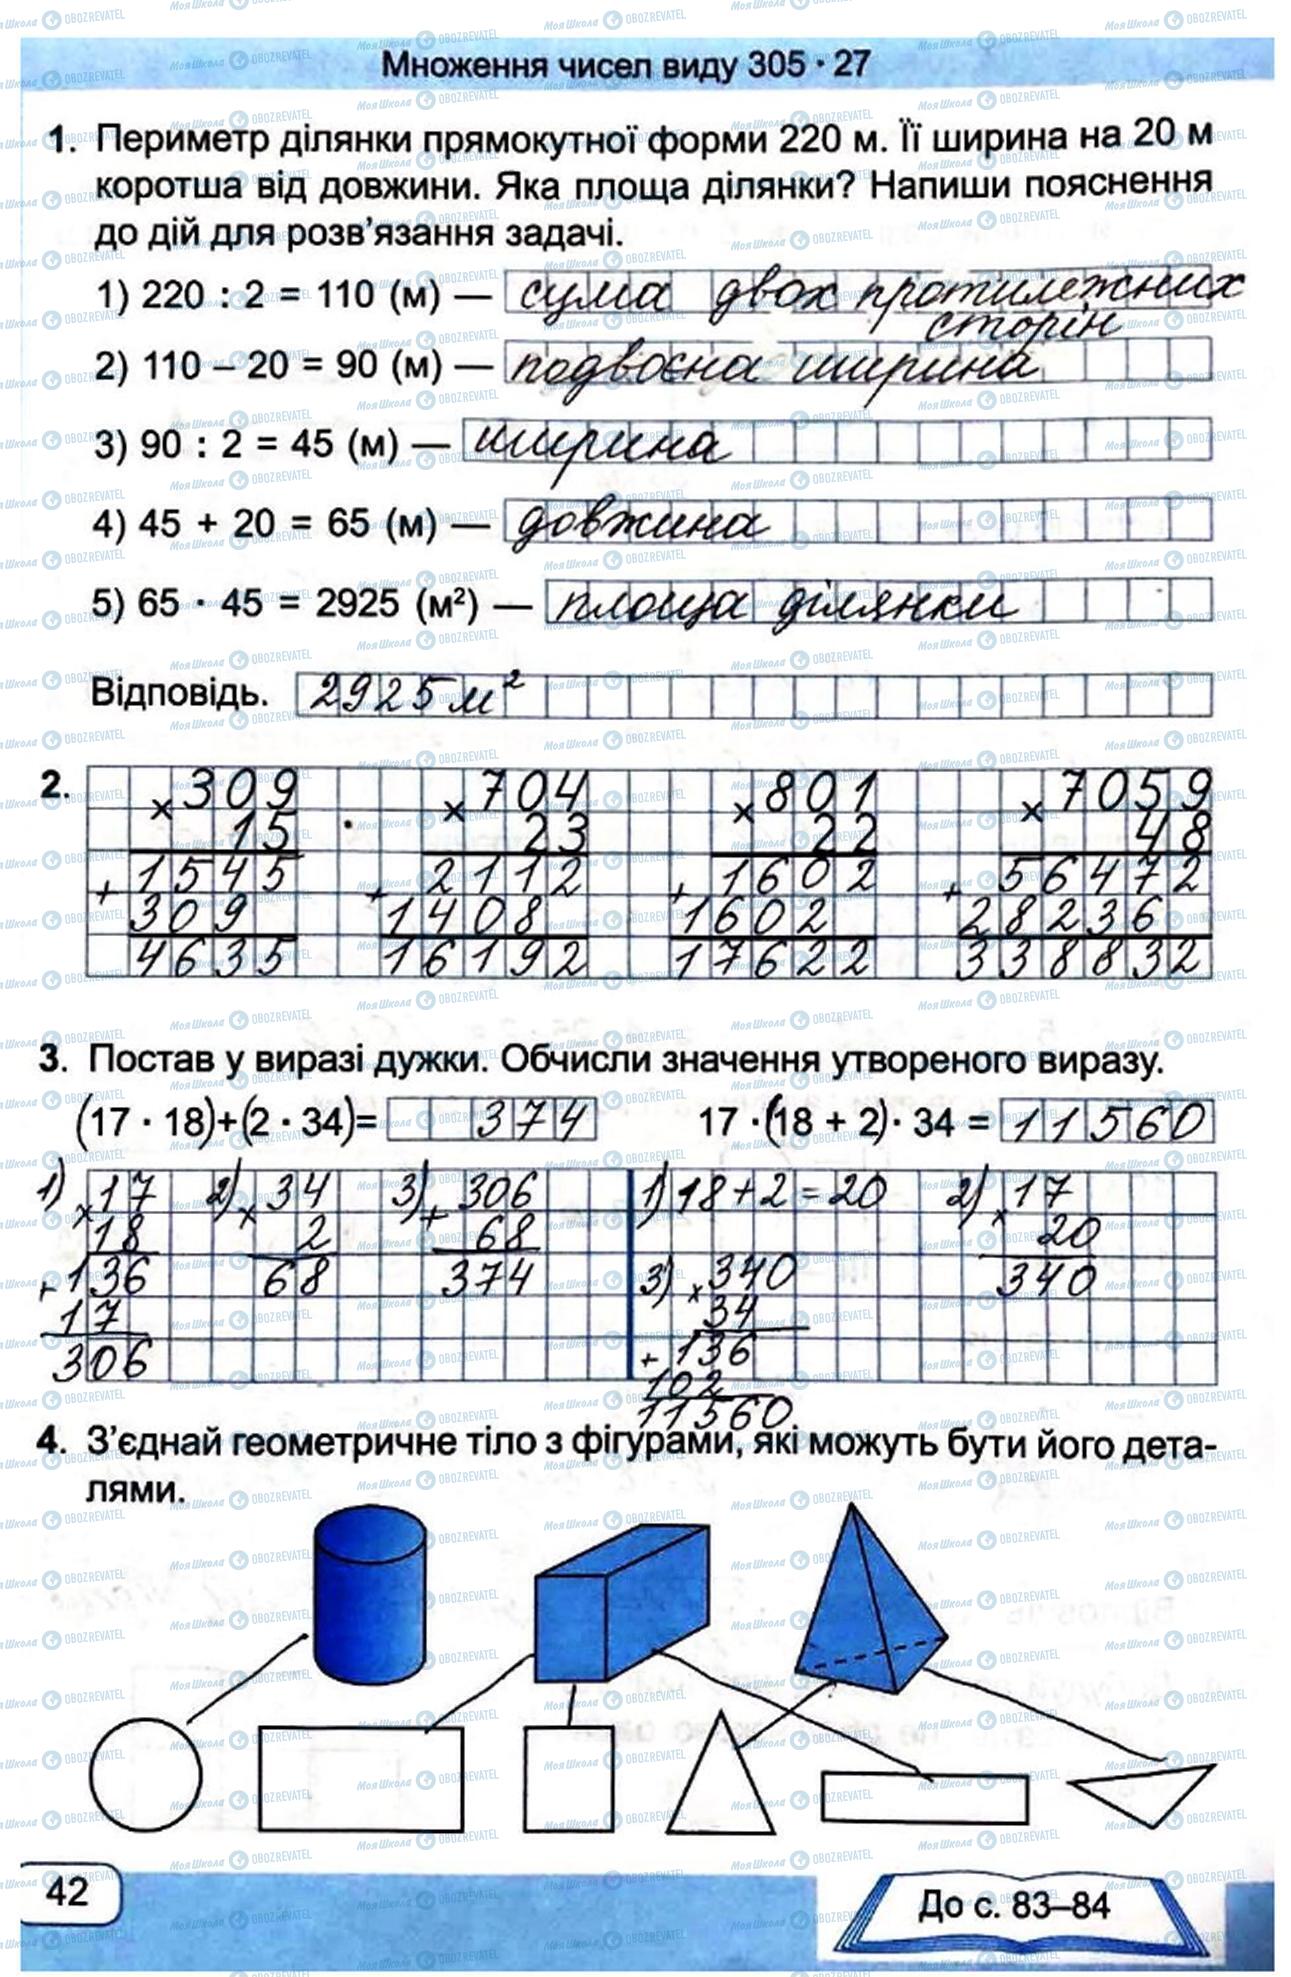 Множення чисел виду 305 · 27
1. Периметр ділянки прямокутної форми 220 м. Її ширина на 20 м
коротша від довжини. Яка площа ділянки? Напиши пояснення
до дій для розв'язання задачі.
1) 220 : 2 = 110 (м) — сума двох протилежних
сторін
2) 110 – 20 = 90 (м) — подвоєна ширина
3) 90 : 2 = 45 (м) — ширина
4) 45 + 20 = 65 (м) — довжина
5) 65 · 45 = 2925 (м²) — площа ділянки
Відповідь. 2925 м²
2. × 309 × 704 × 801 × 7059
15 23 22 48
+ 1545 + 2112 + 1602 + 56472
309 1408 1602 28236
4635 16192 17622 338832
3. Постав у виразі дужки. Обчисли значення утвореного виразу.
(17 · 18)+(2 · 34)= 374 17 ·(18 + 2)· 34 = 11560
1) × 17 2) × 34 3) + 306 1) 18+2=20 2) × 17
18 2 68 20
+ 136 68 374 3) × 340 340
17 34
306 + 136
102
11560
4. З'єднай геометричне тіло з фігурами, які можуть бути його дета-
лями.
42
До с. 83–84
МояШкола OBOZREVATEL